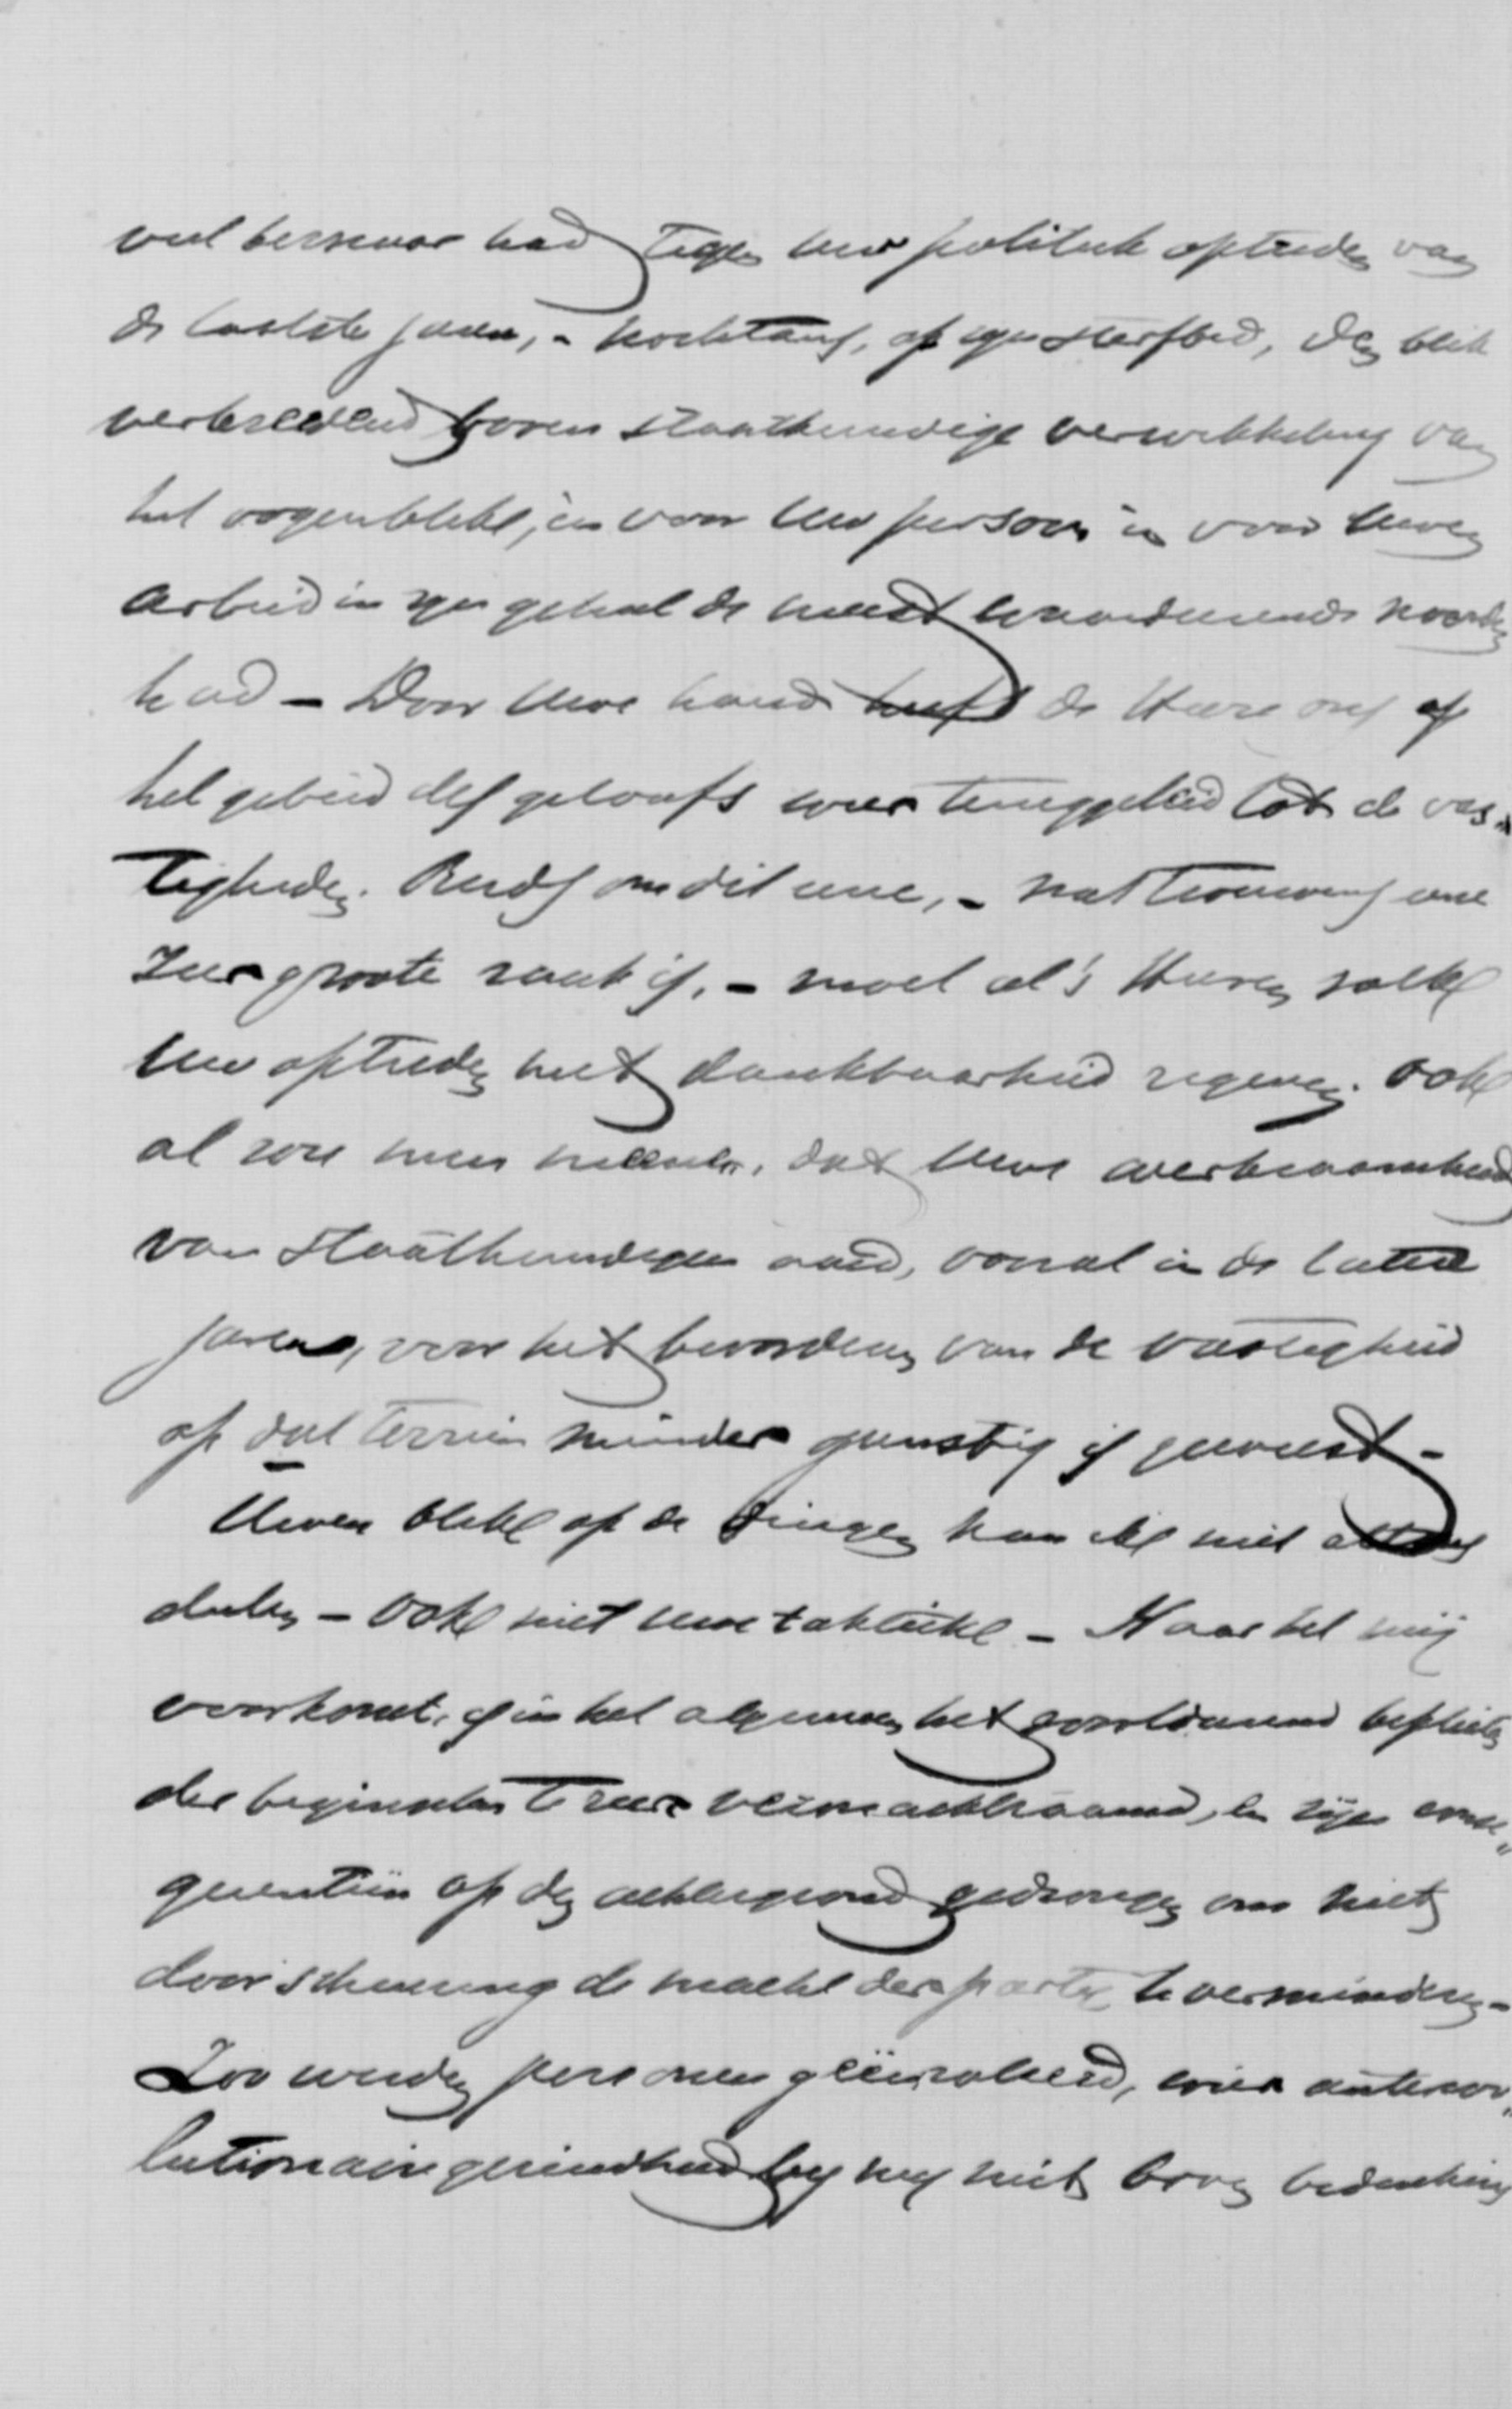 veel bezwaar had tegen Uw politiek optreden van
de laatste jaren, - nochtans, op zijn sterfbed, den blik
verbreedend boven staatkundige verwikkeling van
het oogenblik, èn voor Uw persoon èn voor Uwen
arbeid in zijn geheel de meest waardeerende woorden
had - Door Uwe hand heeft de Heere ons op
het gebied des geloofs weer teruggeleid tot de vas„
tigheden. Reeds om dit eene, - wat trouwens eene
zeer groote zaak is, - moet al 's Heeren volk
Uw optreden met dankbaarheid zegenen. Ook
al zou men meenen, dat Uwe werkzaamheid
van staatkundigen aard, vooral in de latere
jaren, voor het bevorderen van de vastigheid
op dat terrein minder gunstig is geweest -
Uwen blik op de dingen kan ik niet altoos
deelen - Ook niet Uwe taktiek - Naar het mij
voorkomt, is in het algemeen het voortdurend bepleiten
der beginselen te zeer verwaarloosd, en zijn conse„
quentiën op den achtergrond gedrongen om niet
door scheuring de macht der partij te verminderen -
Zoo werden personen geëerd, wier antirevo„
lutionaire gezindheid bij mij niet boven bedenking